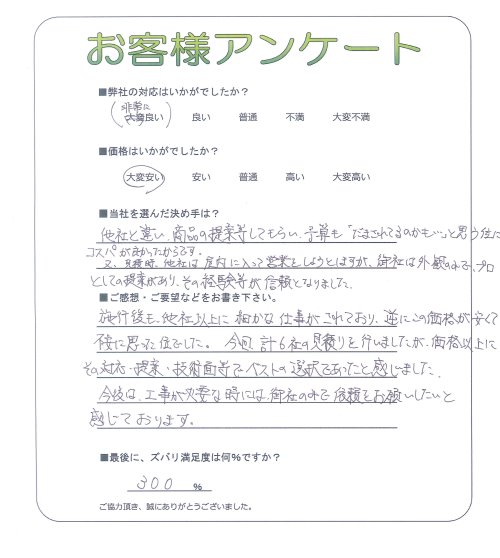 お客様アンケート
■弊社の対応はいかがでしたか？
非常に
大変良い 良い 普通 不満 大変不満
■価格はいかがでしたか？
大変安い 安い 普通 高い 大変高い
■当社を選んだ決め手は？
他社と違い、商品の提案等してもらい、予算も「だまされてるのかも…」と思う位に
コスパが良かったからです。
又、見積時、他社は屋内に入って営業をしようとしますが、御社は外観のみで、プロ
としての提案があり、その経験等が信頼となりました。
■ご感想・ご要望などをお書き下さい。
施行後も、他社以上に細かな仕事がされており、逆にこの価格が安くて
不安に思った位でした。今回、計6社の見積りを行いましたが、価格以上に
その対応・提案・技術面等でベストの選択であったと感じました。
今後は、工事が必要な時には、御社のみで依頼をお願いしたいと
感じております。
■最後に、ズバリ満足度は何％ですか？
300 ％
ご協力頂き、誠にありがとうございました。